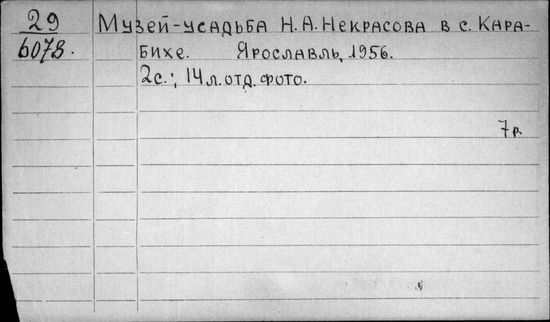 29 Музей-усадьба Н.А.Некрасова в с. Кара-
6078. бихе. Ярославль, 1956.
2с.; 14 л. отд. фото.
7 р.